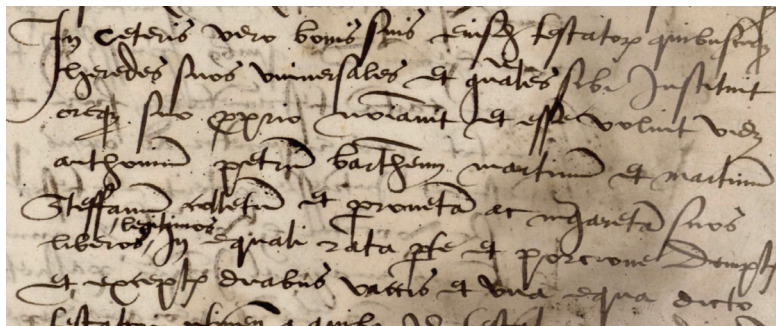 In ceteris vero bonis suis eiusd testator quibuscumq
heredes suos universales et gnales sibi Instituit
oreq suo pprio noiavit et esse voluit vidz
anthonium petrum barthemy martinum et martinum
Steffanum colletum et peronetam ac mgaretam suos
liberos legitimos In equali rata pte et porcione Dempt
et exceptis duabus vaccis et una equa dicto